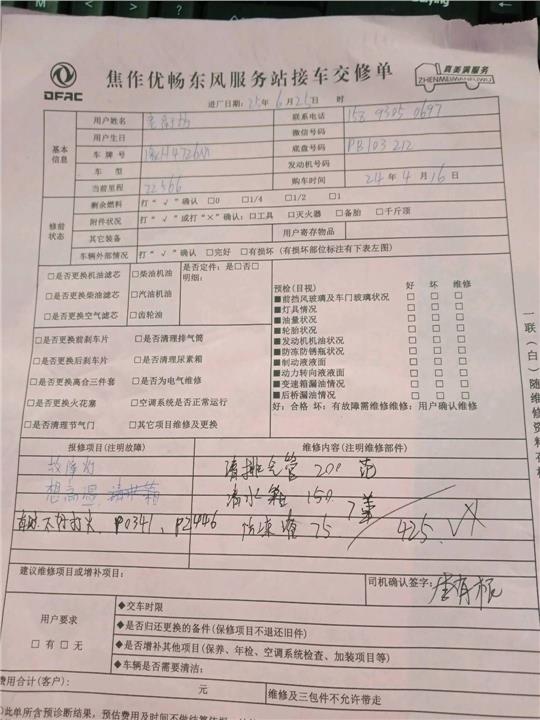 DFAC
焦作优畅东风服务站接车交修单
真美满服务
ZHENMEIMANFUWU
进厂日期:25年6月25日 时
基本信息
用户姓名
联系电话 158 9305 0697
用户生日
微信号码
车牌号
底盘号码 PB103212
车型
发动机号码
当前里程 72566
购车时间 24年4月16日
修前状态
剩余燃料 打“√”确认 □0 □1/4 □1/2 □1
附件状况 打“√”或打“×”确认:□工具 □灭火器 □备胎 □千斤顶
其它装备
用户寄存物品
车辆外部情况 打“√”确认 □完好 □有损坏(有损坏部位标注有下表左图)
□是否更换机油滤芯 □柴油机油
□是否更换柴油滤芯 □汽油机油
□是否更换空气滤芯 □齿轮油
是否定件:是□否□
明细:
预检(目视) 好 坏 维修
■前挡风玻璃及车门玻璃状况 □ □ □
■灯具情况 □ □ □
■油量状况 □ □ □
■轮胎状况 □ □ □
■发动机机油状况 □ □ □
■防冻防锈瓶状况 □ □ □
■制动液液面 □ □ □
■动力转向液液面 □ □ □
■变速箱漏油情况 □ □ □
■后桥漏油情况 □ □ □
好:合格 坏:有故障需维修维修:用户确认维修
□是否更换前刹车片 □是否清理排气筒
□是否更换后刹车片 □是否清理尿素箱
□是否更换离合三件套 □是否为电气维修
□是否更换火花塞 □空调系统是否正常运行
□是否清理节气门 □其它项目维修及更换
一联(白)随维修资料存档
报修项目(注明故障)
维修内容(注明维修部件)
故障灯
清排气管 200
高温
清水箱 150
P0341、P2446
75
425
建议维修项目或增补项目:
司机确认签字:
用户要求
□有 □无
◆交车时限
◆是否归还更换的备件(保修项目不退还旧件)
◆是否增补其他项目(保养、年检、空调系统检查、加装项目等)
◆车辆是否需要清洁:
费用合计(客户): 元
维修及三包件不允许带走